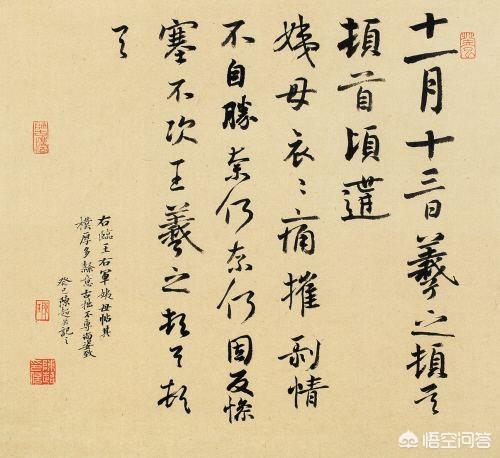 十一月十三日羲之頓首
頓首頃遘
姨母哀〻痛摧剝情
不自勝奈何奈何因反慘
塞不次王羲之頓首頓
首
右臨王右軍姨母帖其
樸厚多隸意古拙不專
癸巳陳超記之
悟空问答